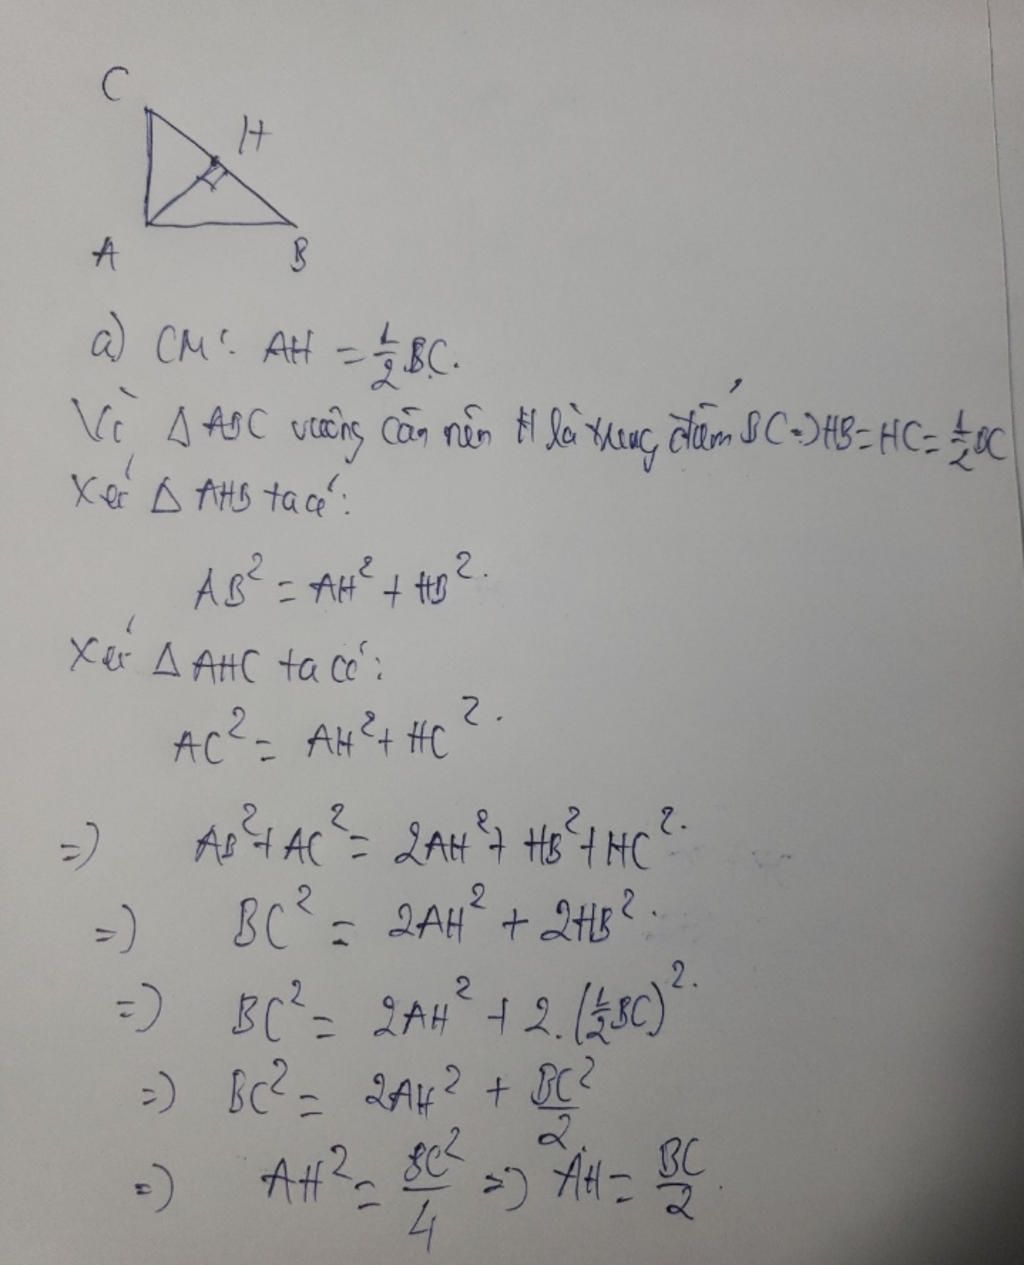 C
H
A
B
a) CM: AH = \frac{1}{2}BC.
Vì Δ ABC vuông cân nên H là trung điểm BC => HB = HC = \frac{1}{2}BC
Xét Δ AHB ta có:
AB² = AH² + HB².
Xét Δ AHC ta có:
AC² = AH² + HC².
=> AB² + AC² = 2AH² + HB² + HC².
=> BC² = 2AH² + 2HB².
=> BC² = 2AH² + 2.(\frac{1}{2}BC)².
=> BC² = 2AH² + \frac{BC²}{2}.
=> AH² = \frac{BC²}{4} => AH = \frac{BC}{2}.